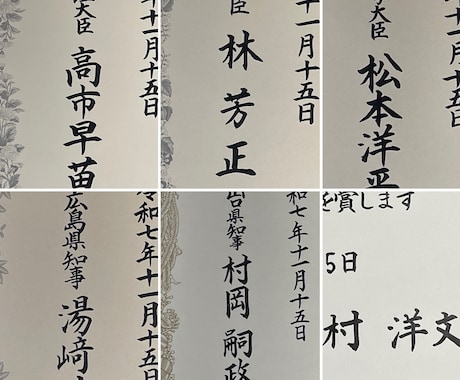 十一月十五日
大臣
高市早苗
十一月十五日
臣
林芳正
十一月十五日
大臣
松本洋平
令和七年十一月十五日
広島県知事
湯﨑
和七年十一月十五日
口県知事
村岡嗣政
を賞します
5日
村 洋文